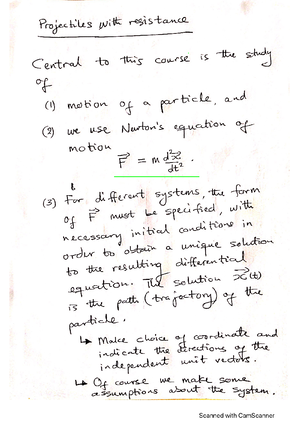 Projectiles with resistance
Central to this course is the study
of
(1) motion of a particle, and
(2) we use Newton's equation of
motion
F⃗ = m d²x⃗/dt² .
(3) For different systems, the form
of F⃗ must be specified, with
necessary initial conditions in
order to obtain a unique solution
to the resulting differential
equation. The solution x⃗(t)
is the path (trajectory) of the
particle.
↳ Make choice of coordinate and
indicate the directions of the
independent unit vectors.
↳ Of course we make some
assumptions about the system.
Scanned with CamScanner